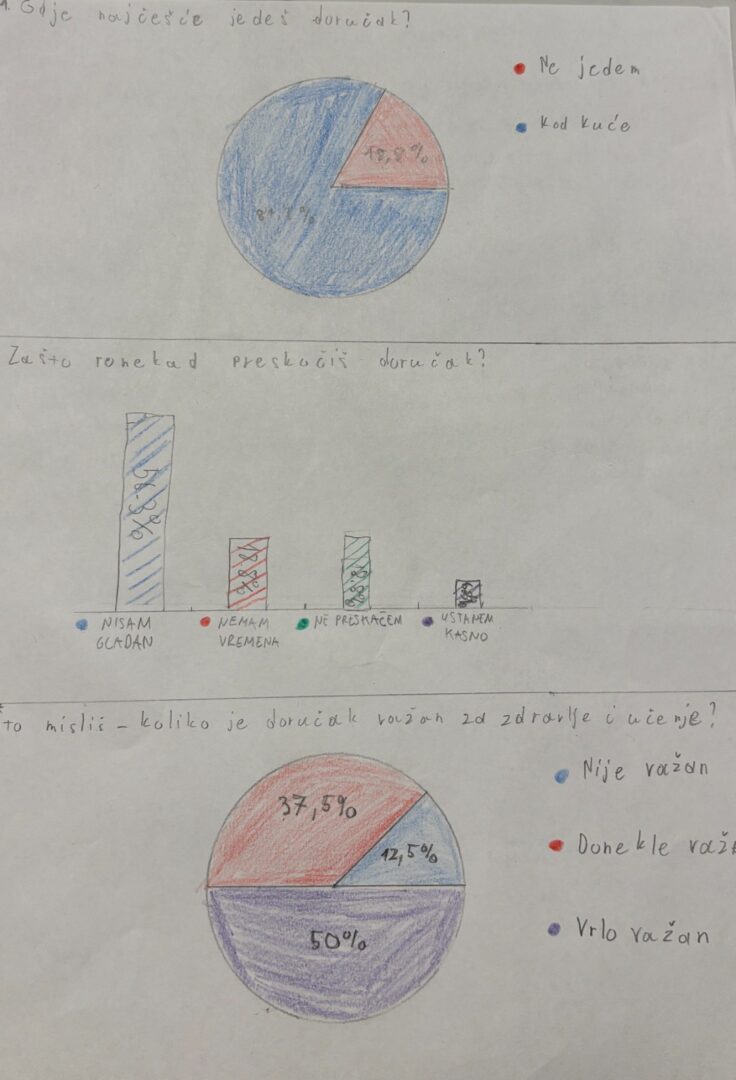 1. Gdje najčešće jedeš doručak?
• Ne jedem
18,8%
• Kod kuće
Zašto ponekad preskočiš doručak?
56.3%
18.8%
18.8%
• NISAM GLADAN
• NEMAM VREMENA
• NE PRESKAČEM
• USTANEM KASNO
to misliš - koliko je doručak važan za zdravlje i učenje?
• Nije važan
37,5%
12,5%
• Donekle važ
• Vrlo važan
50%